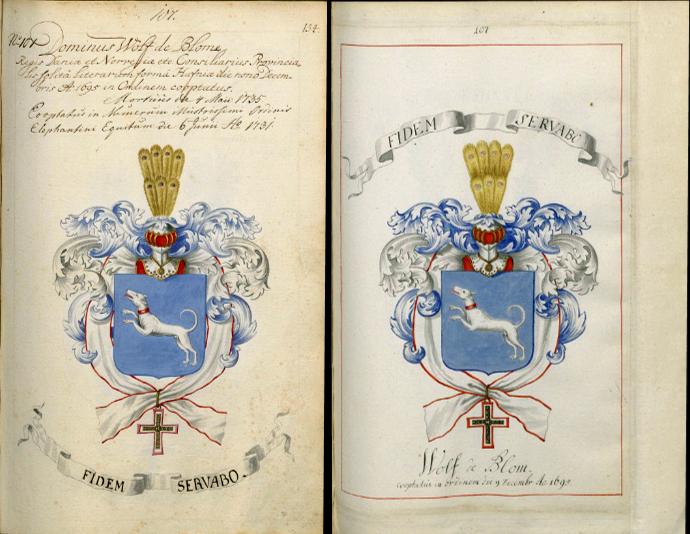 107.
134.
No 107. Dominus Wolf de Blome
Regis Daniæ et Norvegiæ etc Consiliarius Provincia
lis solita literarum forma Hafniæ die nono Decem-
bris Ao 1695 in Ordinem cooptatus.
Mortuus da 4 Maii 1735.
Cooptatus in Numerum Illustrissimi Ordinis
Elephantini Equitum de 6 Junii Ao 1731.
FIDEM SERVABO.
107
FIDEM SERVABO
Wolf de Blom.
cooptatus in ordinem die 9 Decembr. de 1695